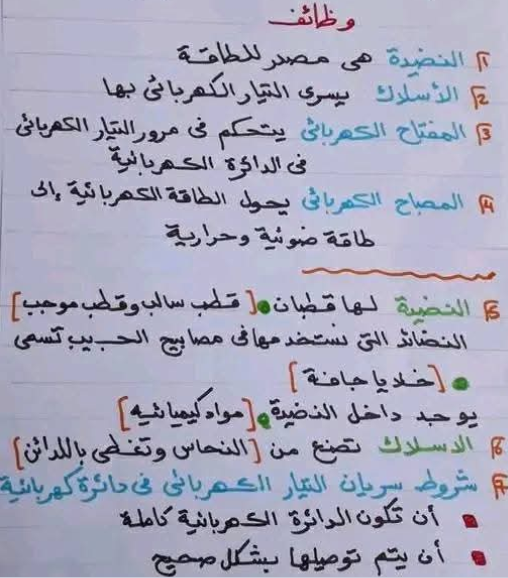 وظائف
١ النضيدة هى مصدر للطاقة
٢ الأسلاك يسرى التيار الكهربائى بها
٣ المفتاح الكهربائى يتحكم فى مرور التيار الكهربائى
فى الدائرة الكهربائية
٤ المصباح الكهربائى يحول الطاقة الكهربائية إلى
طاقة ضوئية وحرارية
٥ النضيدة لها قطبان [قطب سالب وقطب موجب]
النضائد التى نستخدمها فى مصابيح الجيب تسمى
[خلايا جافة]
يوجد داخل النضيدة [مواد كيميائيه]
٦ الاسلاك تصنع من [النحاس وتغطى باللدائن]
٧ شروط سريان التيار الكهربائى فى دائرة كهربائية
أن تكون الدائرة الكهربائية كاملة
أن يتم توصيلها بشكل صحيح